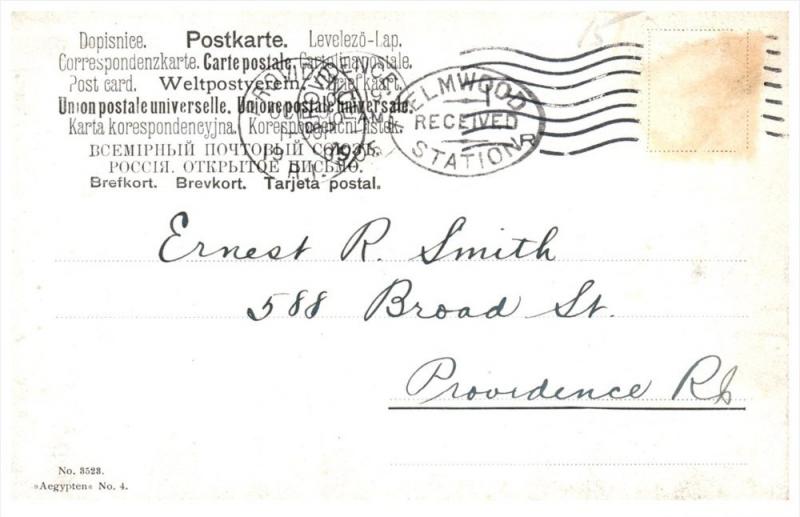 Dopisnice. Postkarte. Levelező-Lap.
Correspondenzkarte. Carte postale. Cartolina postale.
Post card. Weltpostverein. Briefkaart.
Union postale universelle. Unione postale universale.
Karta korespondencyjna. Korespondenční lístek.
ВСЕМІРНЫЙ ПОЧТОВЫЙ СОЮЗЪ.
РОССІЯ. ОТКРЫТОЕ ПИСЬМО.
Brefkort. Brevkort. Tarjeta postal.
PROVIDENCE
ELMWOOD
RECEIVED
STATION R
15
Ernest R. Smith
588 Broad St.
Providence RI
No. 3523.
»Aegypten« No. 4.